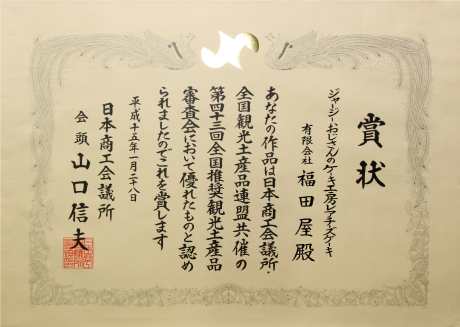 賞状
ジャージーおじさんのケーキ工房レアチーズケーキ
有限会社 福田屋殿
あなたの作品は日本商工会議所・
全国観光土産品連盟共催の
第四十三回全国推奨観光土産品
審査会において優れたものと認め
られましたのでこれを賞します
平成十五年一月二十八日
日本商工会議所
会頭 山口信夫